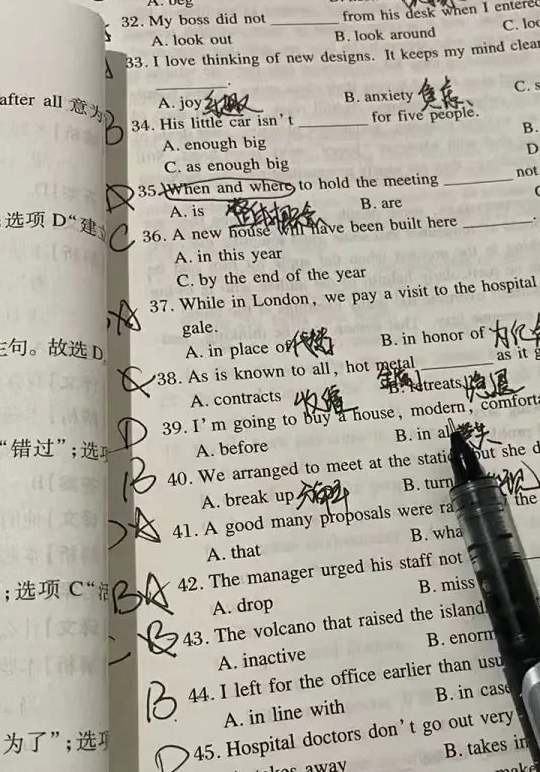 A. beg
32. My boss did not ______ from his desk when I entered
A. look out B. look around C. loo
33. I love thinking of new designs. It keeps my mind clear
______.
A. joy 乐趣 B. anxiety 焦虑 C. s
B 34. His little car isn't ______ for five people.
A. enough big B.
C. as enough big D
35. When and where to hold the meeting ______ not
A. is 整体概念 B. are
C 36. A new house will have been built here ______.
A. in this year
C. by the end of the year
A 37. While in London, we pay a visit to the hospital
gale.
A. in place of 代替 B. in honor of 为纪念
38. As is known to all, hot metal ______ as it g
A. contracts 收缩 B. retreats 撤退
D 39. I'm going to buy a house, modern, comforta
A. before B. in al
B 40. We arranged to meet at the statio but she d
A. break up B. turn
A 41. A good many proposals were ra the
A. that B. wha
BA 42. The manager urged his staff not
A. drop B. miss
B 43. The volcano that raised the island
A. inactive B. enorm
B 44. I left for the office earlier than usu
A. in line with B. in case
D 45. Hospital doctors don't go out very
takes away B. takes in
make
after all 意为
选项 D“建立
主句。故选 D
“错过”;选项
;选项 C“活
为了”;选项